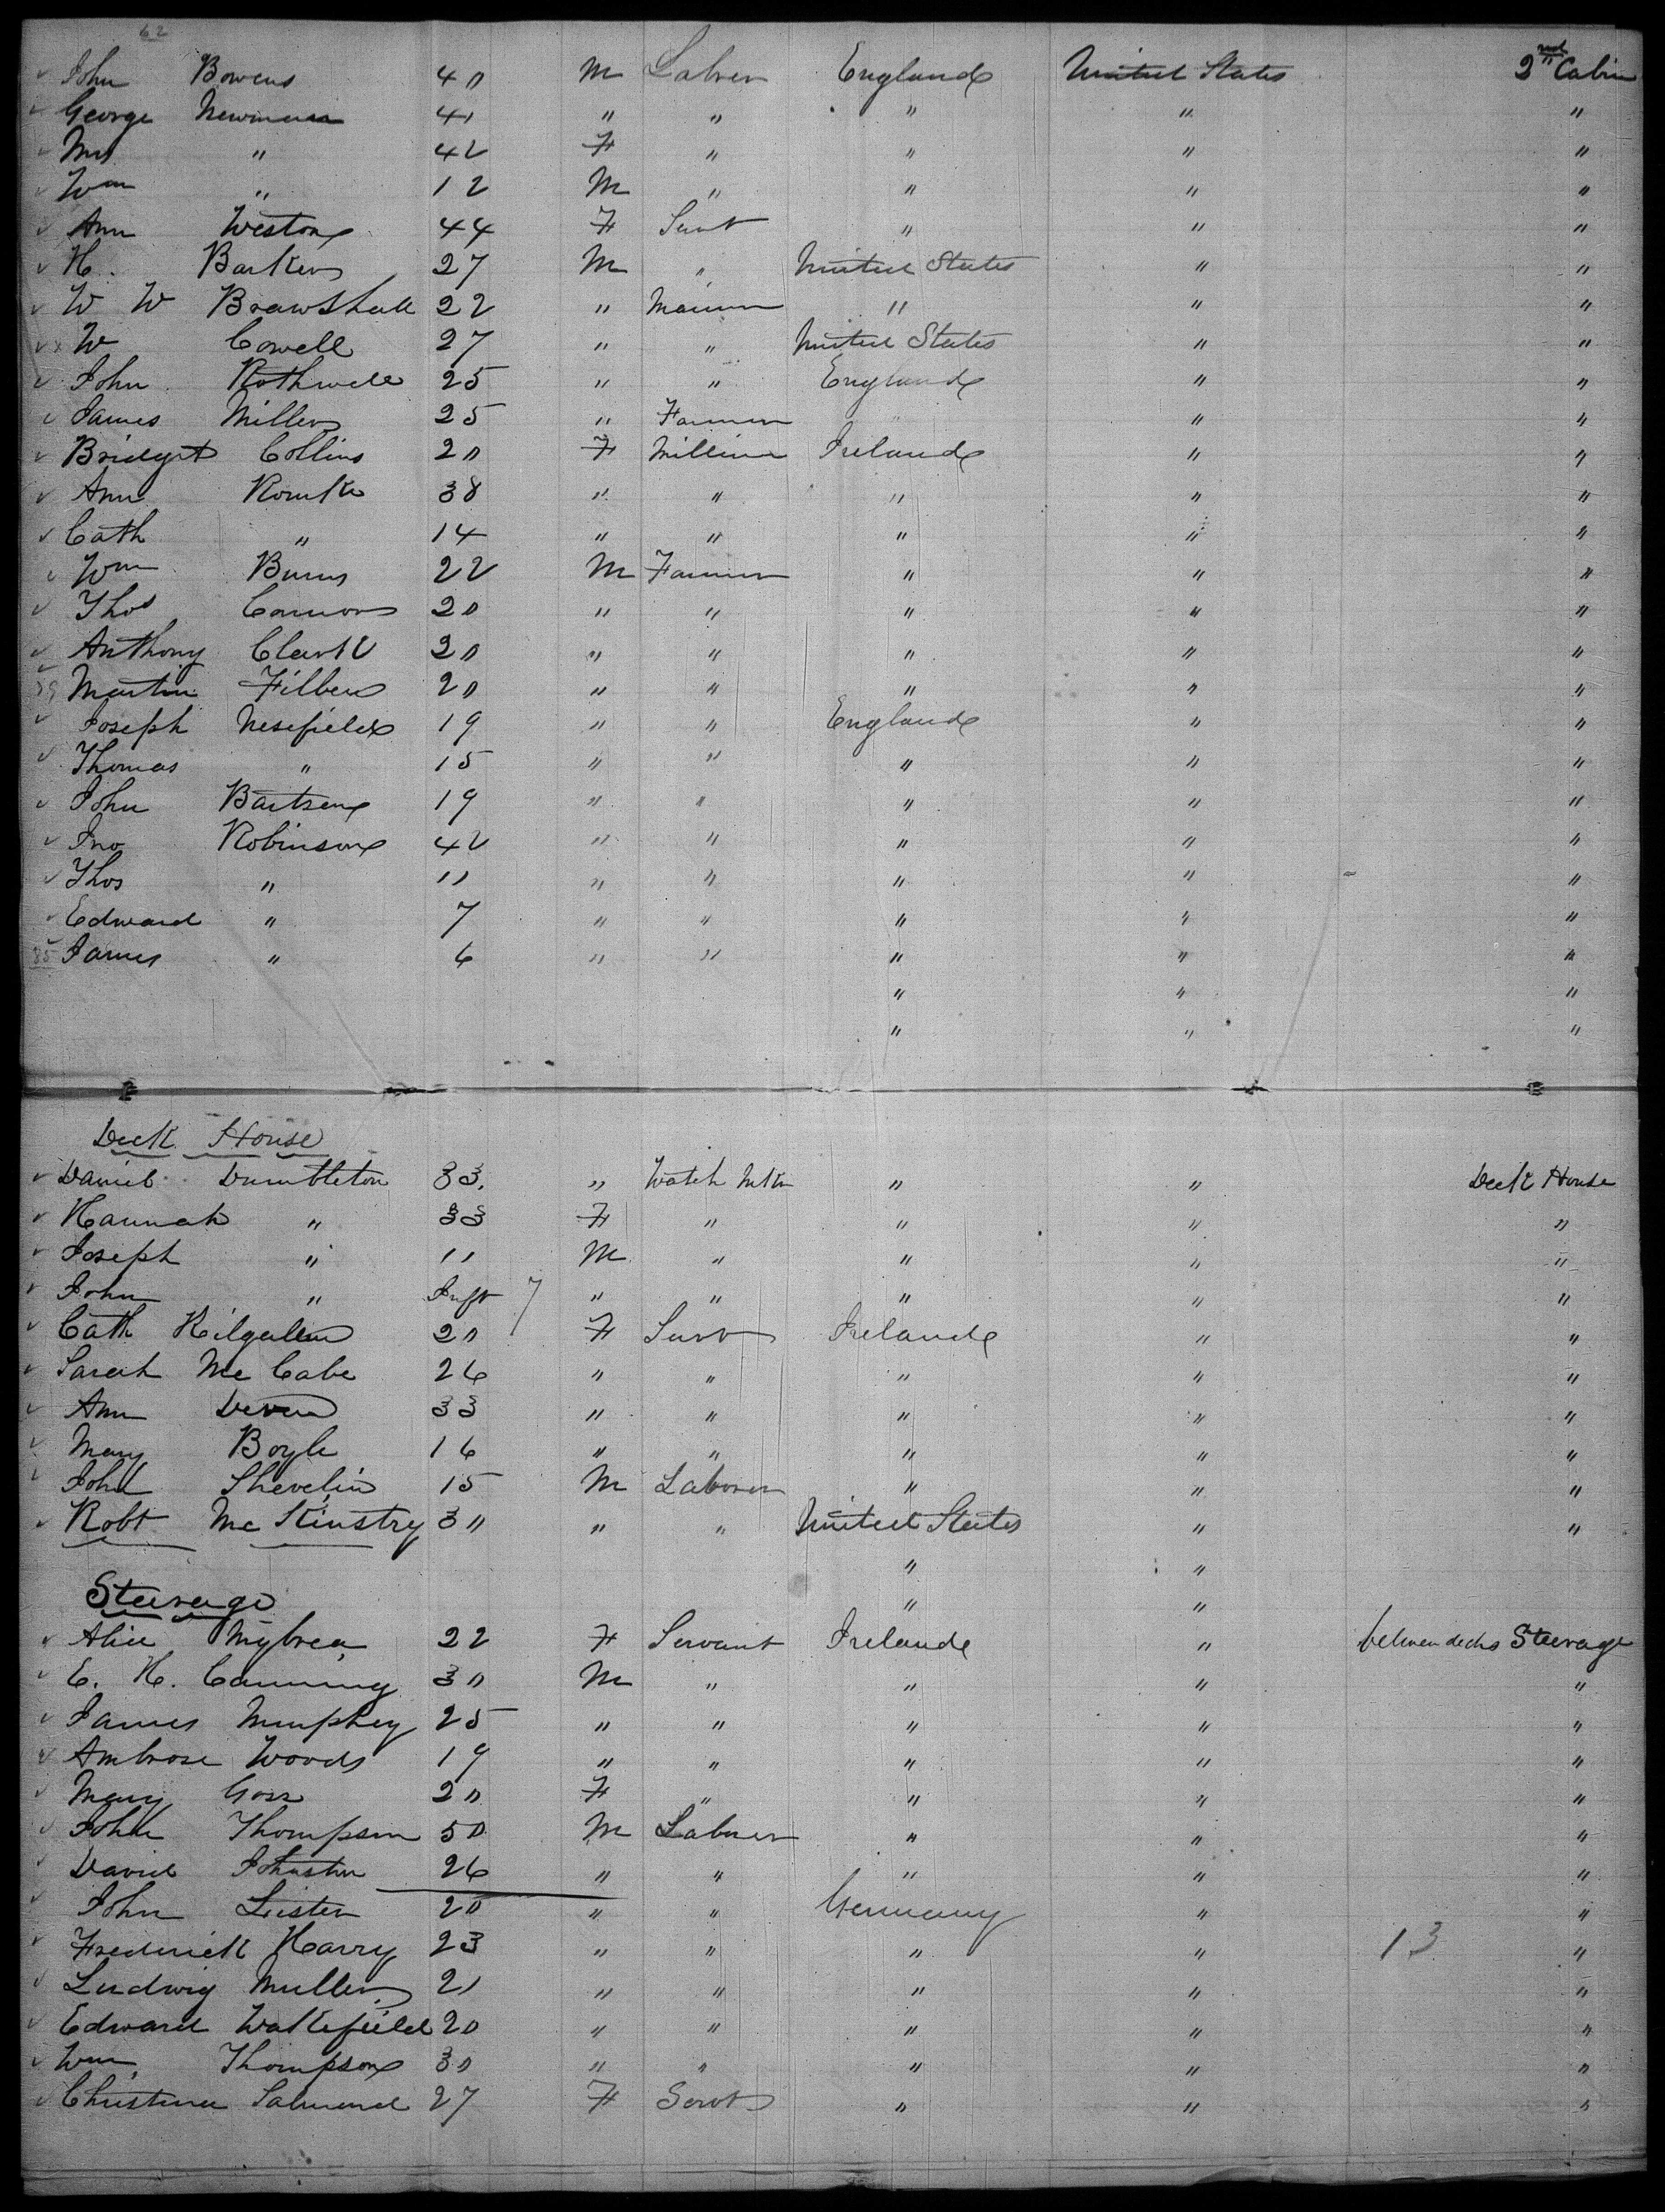 62
John Bowens 40 M Labrer England United States 2nd Cabin
George Newman 41 " " " " "
Mrs " 42 F " " " "
Wm " 12 M " " " "
Ann Weston 44 F Servt " " "
H. Barker 27 M " United States " "
W W Brawshall 22 " " " "
W Cowell 27 " " United States " "
John Rothwell 25 " " England " "
James Miller 25 " Farmer " " "
Bridget Collins 20 F Milliner Ireland " "
Ann Rourke 38 " " " " "
Cath " 14 " " " " "
Wm Burns 22 M Farmer " " "
Thos Connors 20 " " " " "
Anthony Clark 20 " " " " "
Martin Filben 20 " " " " "
Joseph Nesefield 19 " " England " "
Thomas " 15 " " " " "
John 19 " " " " "
Jno Robinson 42 " " " " "
Thos " 11 " " " " "
Edward " 7 " " " " "
85 James " 6 " " " " "
" " "
" " "
Deck House
Daniel Dumbleton 33. " Watch Mkr " " Deck House
Hannah " 33 F " " " "
Joseph " 11 M " " " "
John " Inft 7 " " " " "
Cath Kilgallen 20 F Servt Ireland " "
Sarah Mc Cabe 26 " " " " "
Ann 33 " " " " "
Mary Boyle 16 " " " " "
John Shevelin 15 M Laborer " " "
Robt Mc Kinstry 30 " " United States " "
" "
Steerage
" "
Alice 22 F Servant Ireland " between decks Steerage
E. H. Canning 30 M " " " "
James Murphey 25 " " " " "
Ambrose Woods 19 " " " " "
Mary 20 F " " " "
John Thompson 50 M Laburer " " "
David Johnston 26 " " " " "
John Lister 20 " " Germany " "
Frederick Harry 23 " " " " 13 "
Ludwig Muller 21 " " " " "
Edward Wakefield 20 " " " " "
Wm Thompson 30 " " " " "
Christina Salmond 27 F Servt " " "